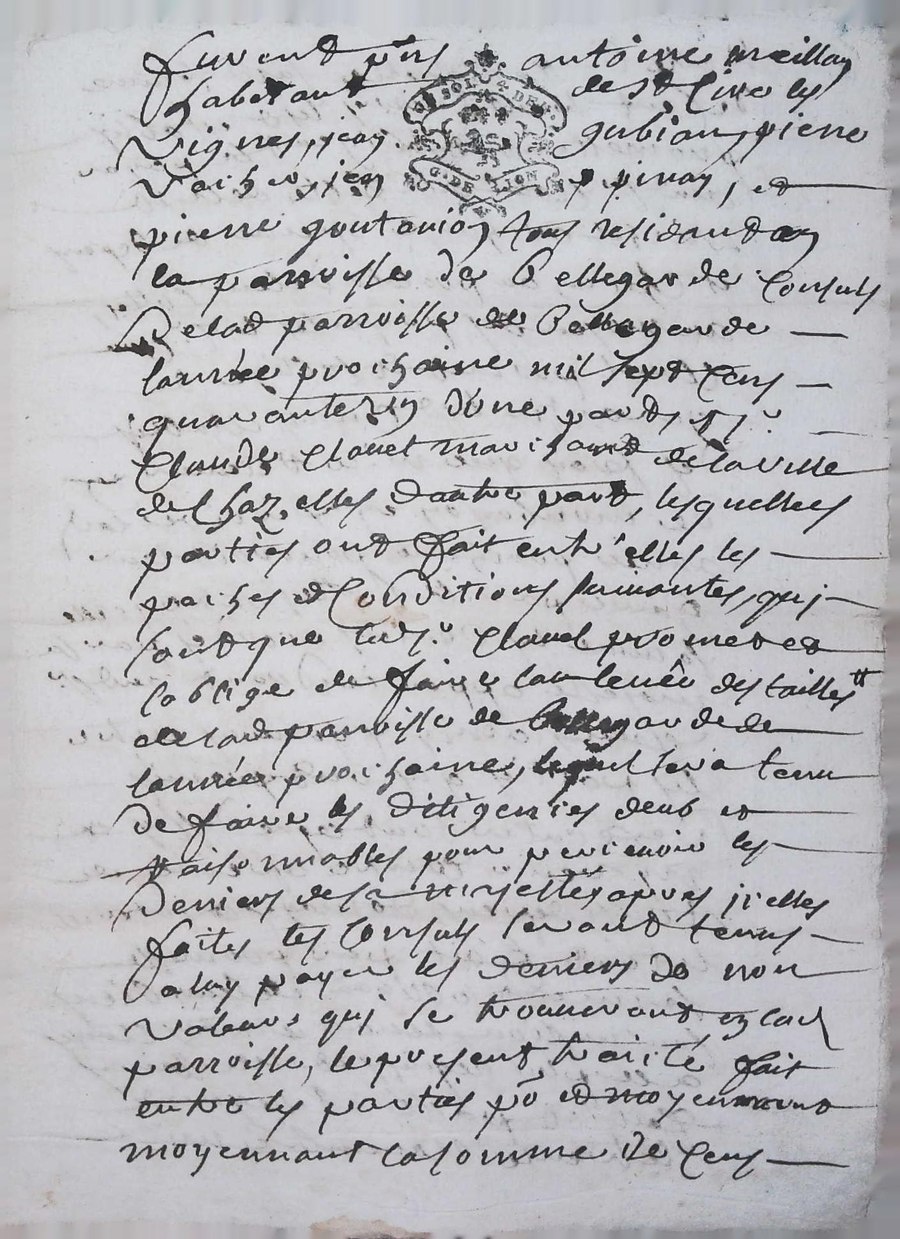 furent pñs antoine meillan
habitant de st Cire les
Vignes, jean gubian, pierre
Vacher, jean pinay, et
pierre goutanion tous residend en
la parroisse de Bellegarde Consuls
De lad parroisse de Bellegarde
lannée prochaine mil sept cens
quarantetrois d'une part, et sr
Claude Clauel marchand de la ville
de Chazelles d'autre part, lesquelles
parties ont fait entr'elles les
paches et Conditions suiuantes, qui
sont que led sr Clauel promet et
soblige de faire la leuée des tailles
de lad parroisse de Bellegarde de
lannée prochaine, lequel sera tenu
De faire les diligences deub et
Raisonnables pour perceuoir les
Deniers des apres jcelles
faites les Consuls seront tenus
a luy payer les deniers de non
Valeurs qui se trouueront en lad
parroisse, le present traicté fait
entre les parties po et moyennant
moyennant la somme de cens
SOL DEN
G. DE LION